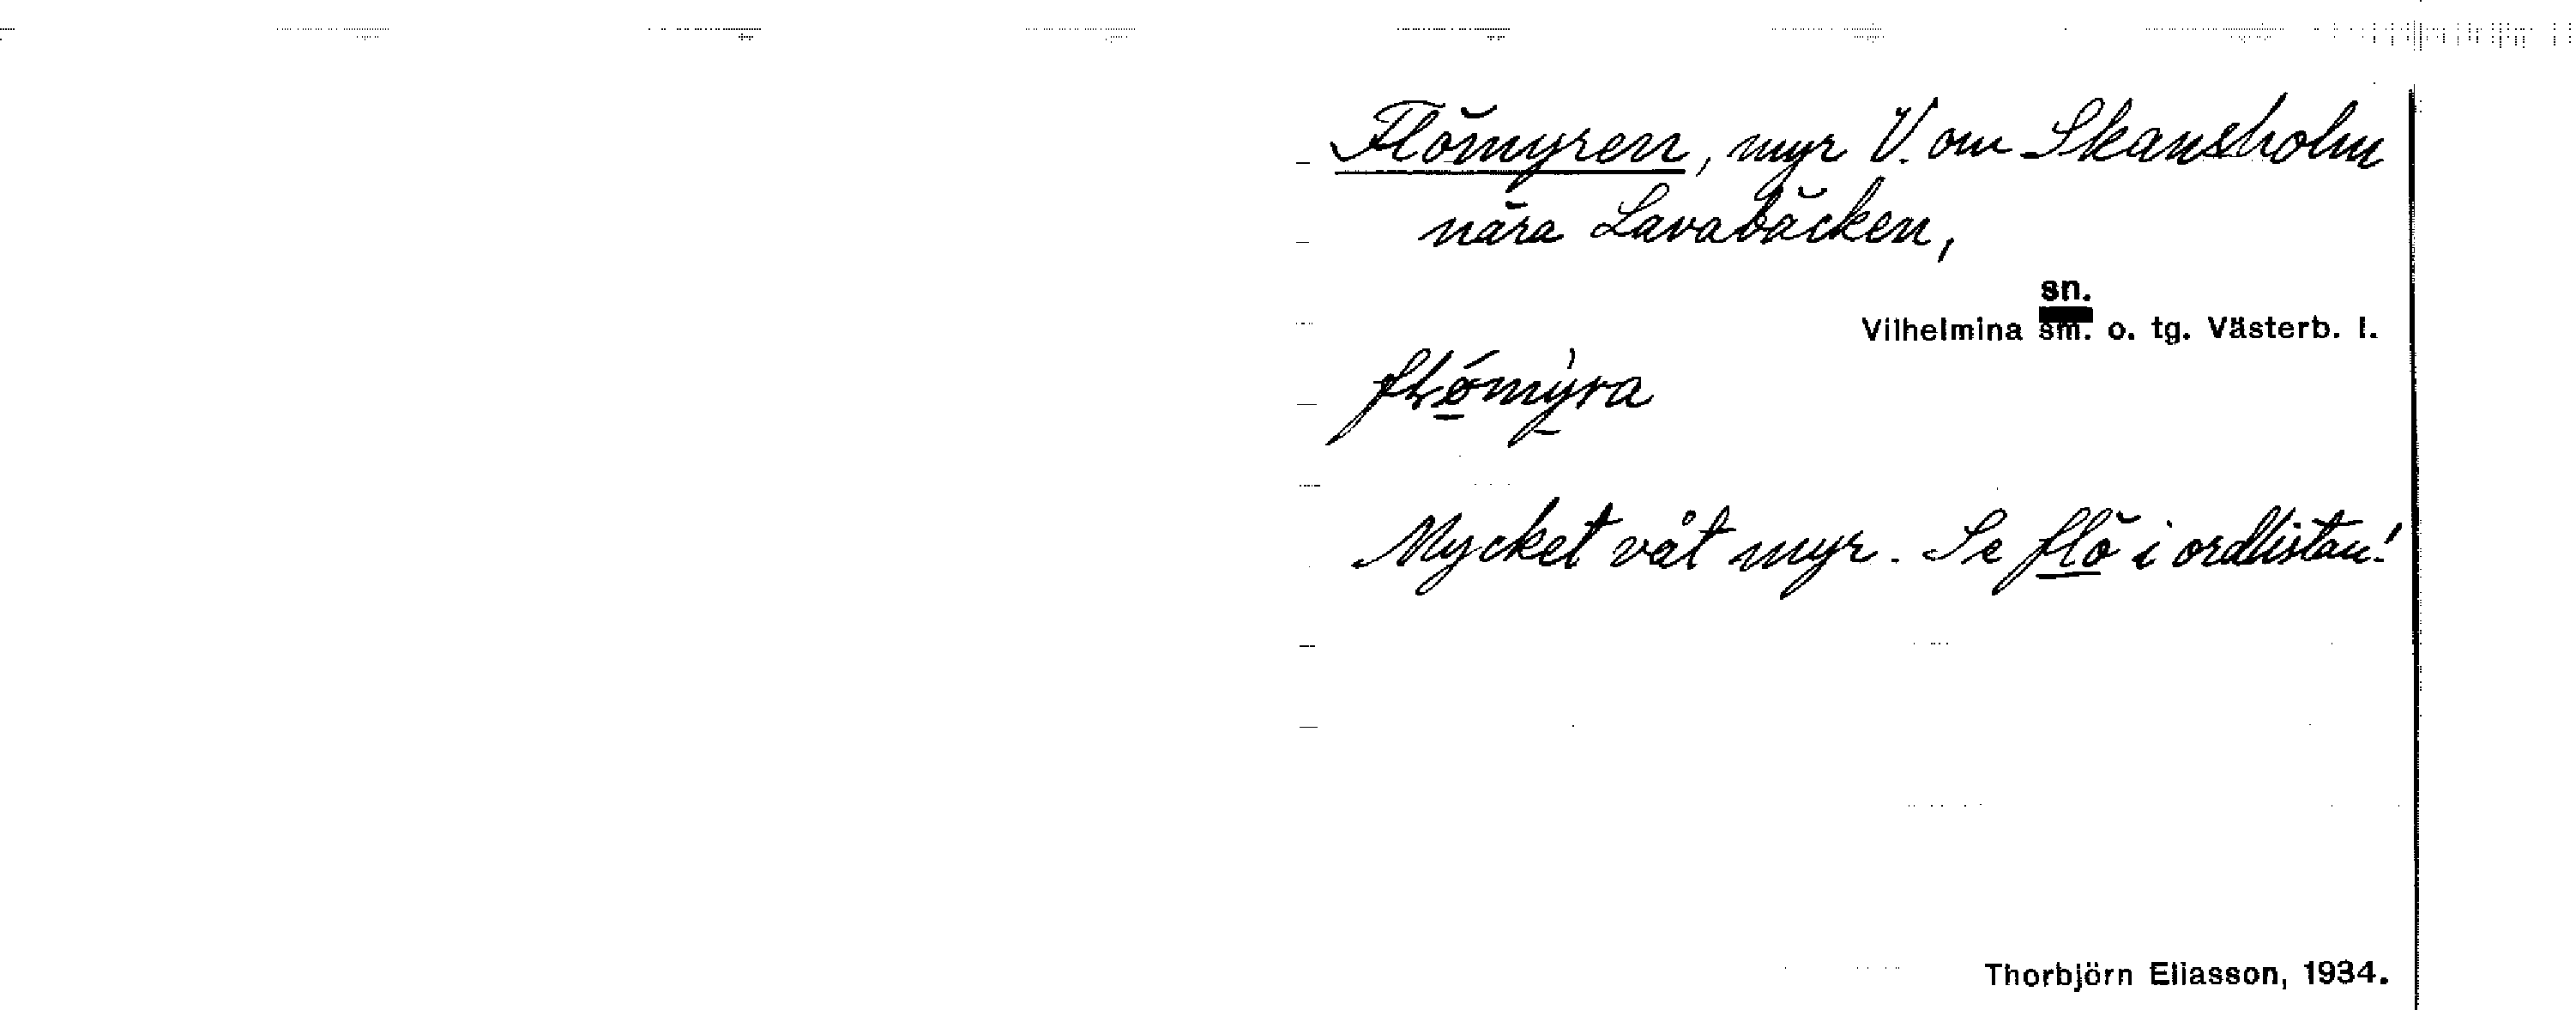 Flömyren, myr V. om Skansholm
nära Lavabäcken,
sn.
Vilhelmina sm. o. tg. Västerb. l.
Mycket våt myr. Se flö i ordlistan!
Thorbjörn Eliasson, 1934.